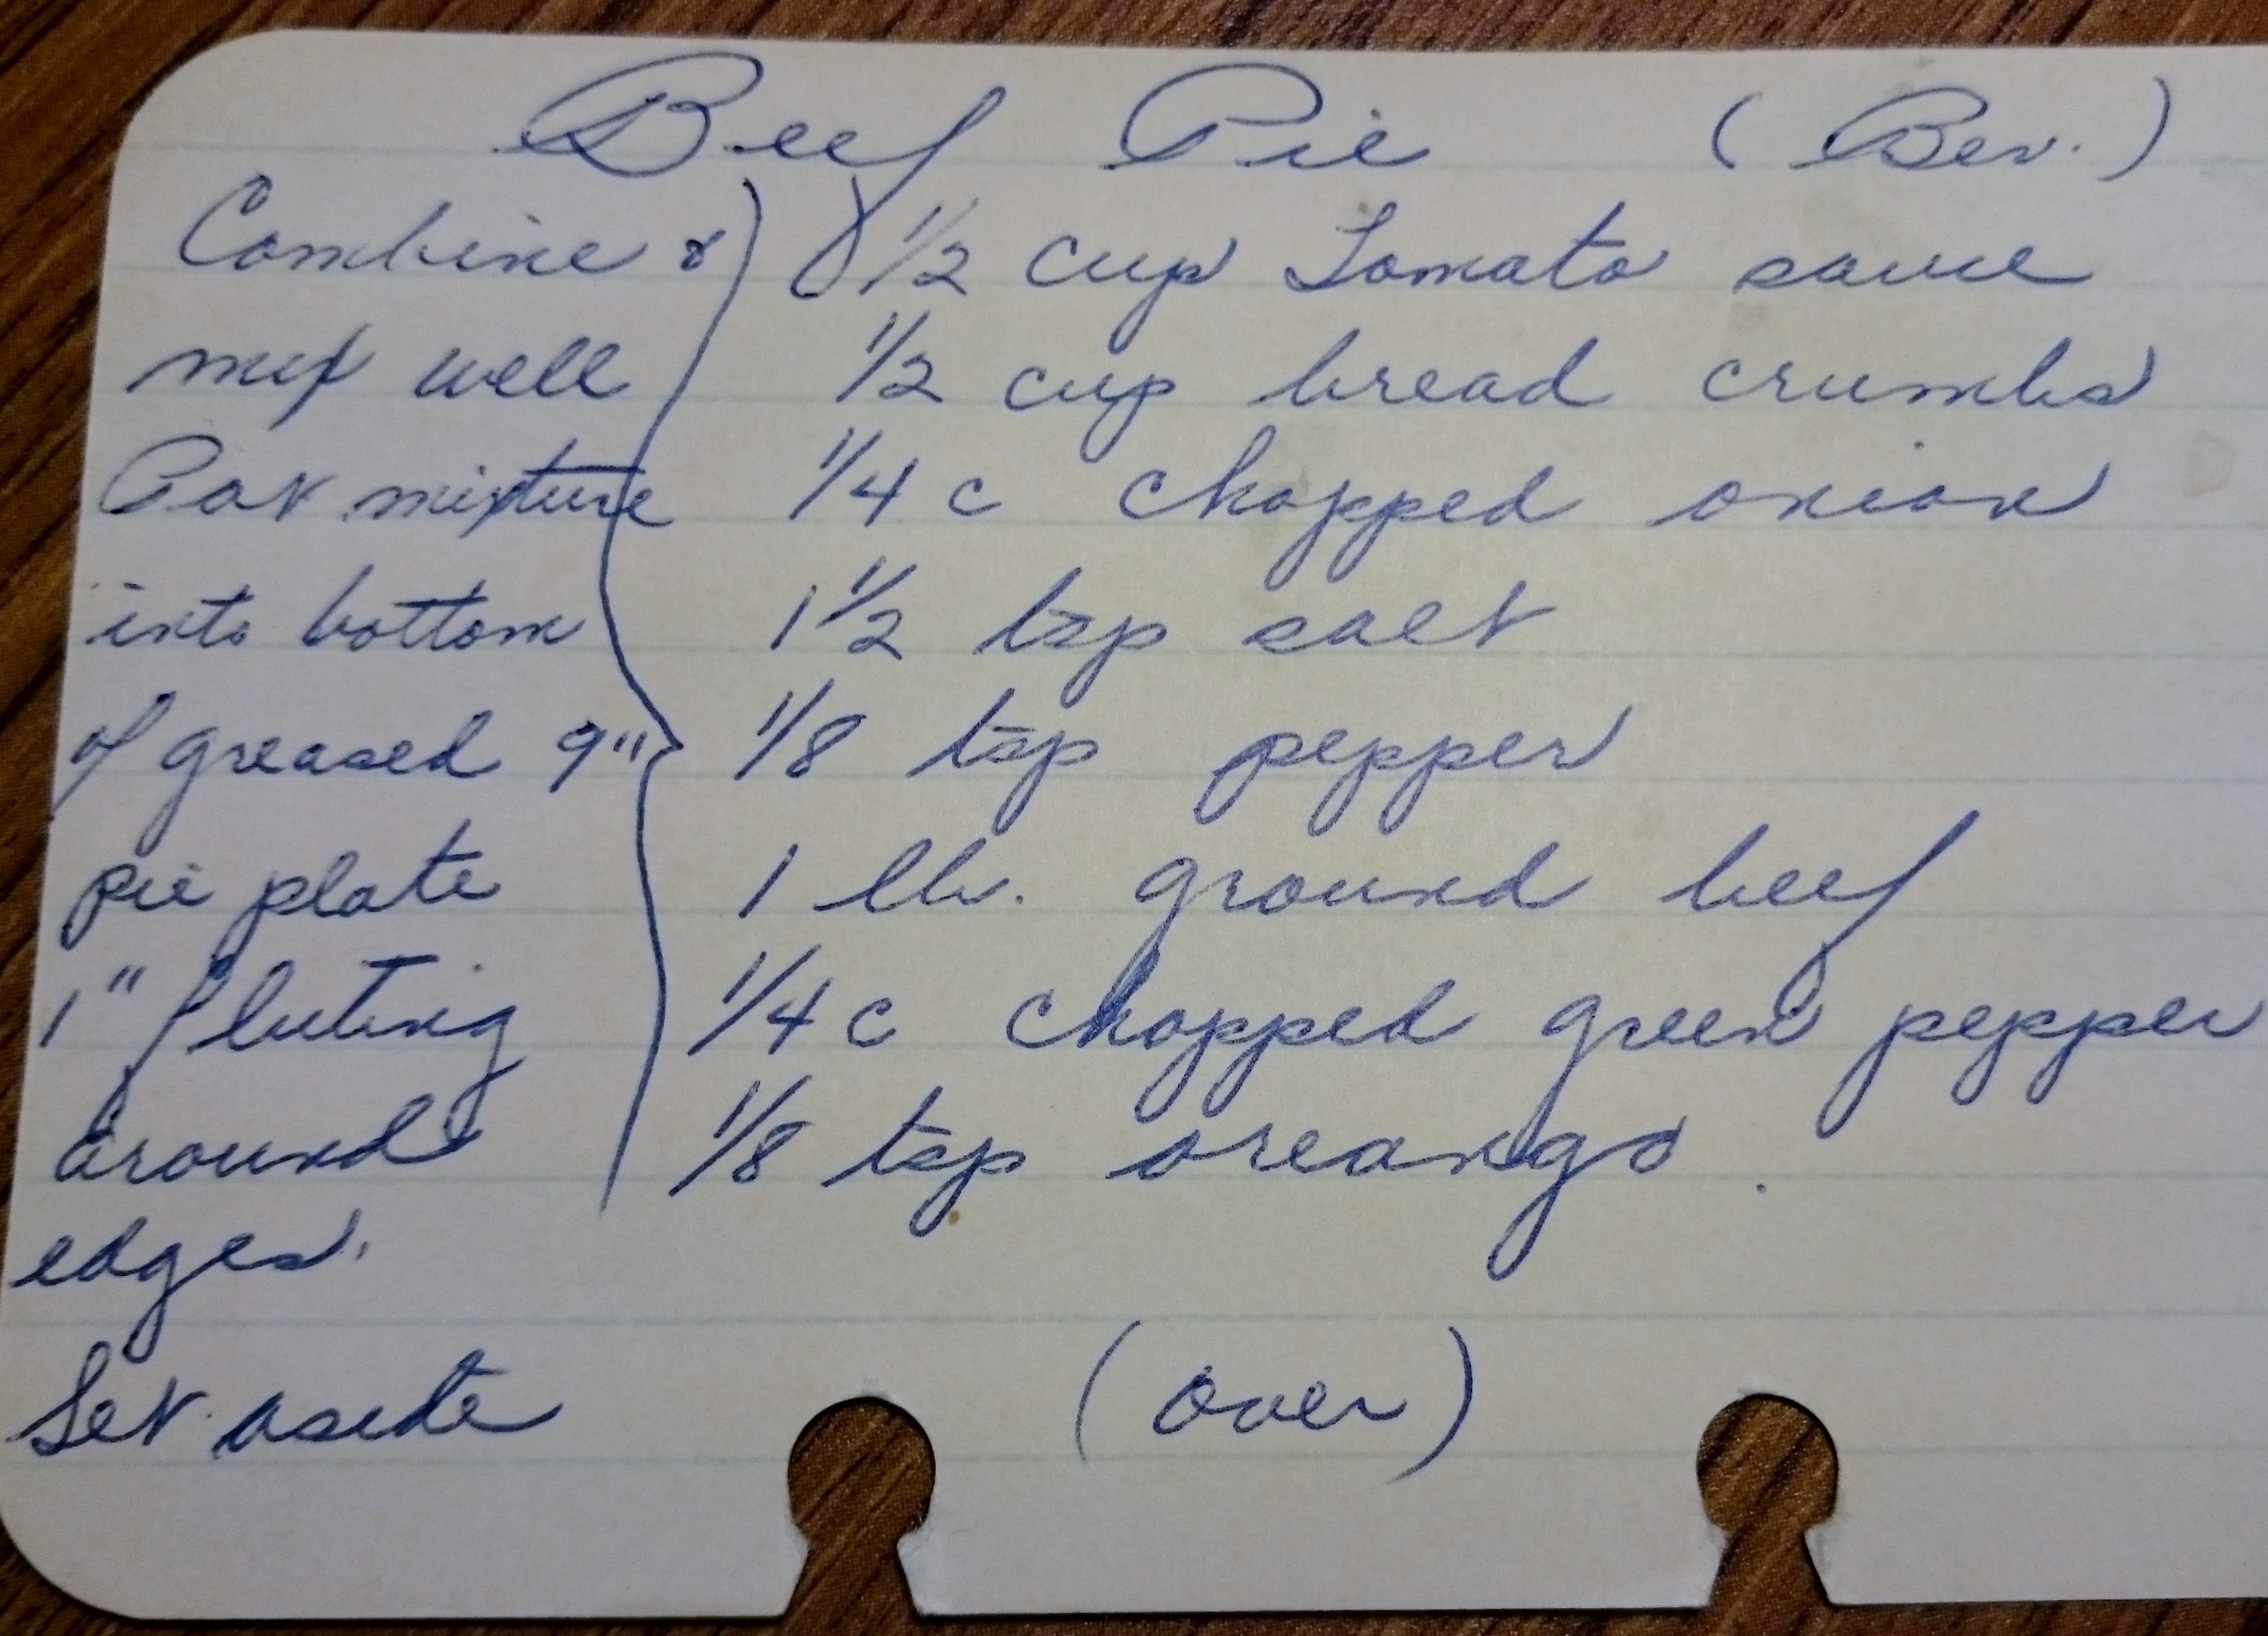 Beef Pie (Bev.)
Combine &
mix well
Pat mixture
into bottom
of greased 9"
pie plate
1" fluting
around
edges.
Set aside
1/2 cup Tomato sauce
1/2 cup bread crumbs
1/4 c chopped onion
1 1/2 tsp salt
1/8 tsp pepper
1 lb. ground beef
1/4 c chopped green pepper
1/8 tsp oreango
(over)